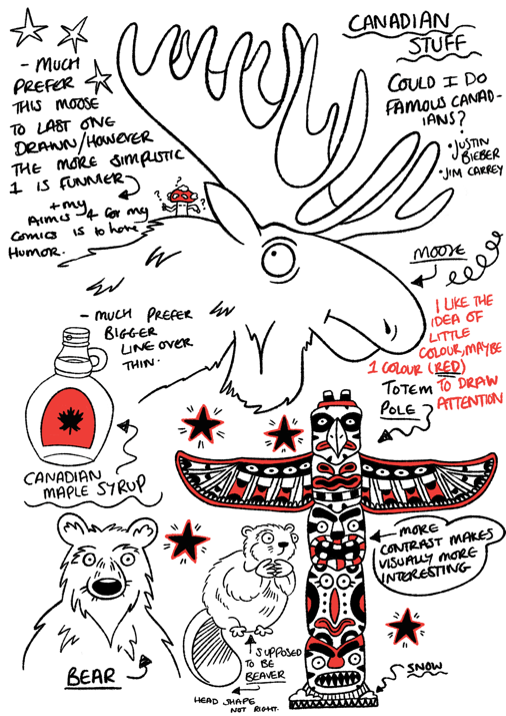 CANADIAN
STUFF
- MUCH
PREFER
THIS MOOSE
TO LAST ONE
DRAWN/HOWEVER
THE MORE SIMPLISTIC
1 IS FUNNIER
+ my
AIMS 4 for my
comics is to have
HUMOR.
? ? ? ?
COULD I DO
FAMOUS CANAD-
IANS?
• JUSTIN
BIEBER
• JIM CARREY
MOOSE
- MUCH PREFER
BIGGER
LINE OVER
THIN.
I LIKE THE
IDEA OF
LITTLE
COLOUR, MAYBE
1 COLOUR (RED)
TO DRAW
ATTENTION
TOTEM
POLE
CANADIAN
MAPLE SYRUP
MORE
CONTRAST MAKES
VISUALLY MORE
INTERESTING
BEAR
SUPPOSED
TO BE
BEAVER
HEAD SHAPE
NOT RIGHT.
SNOW